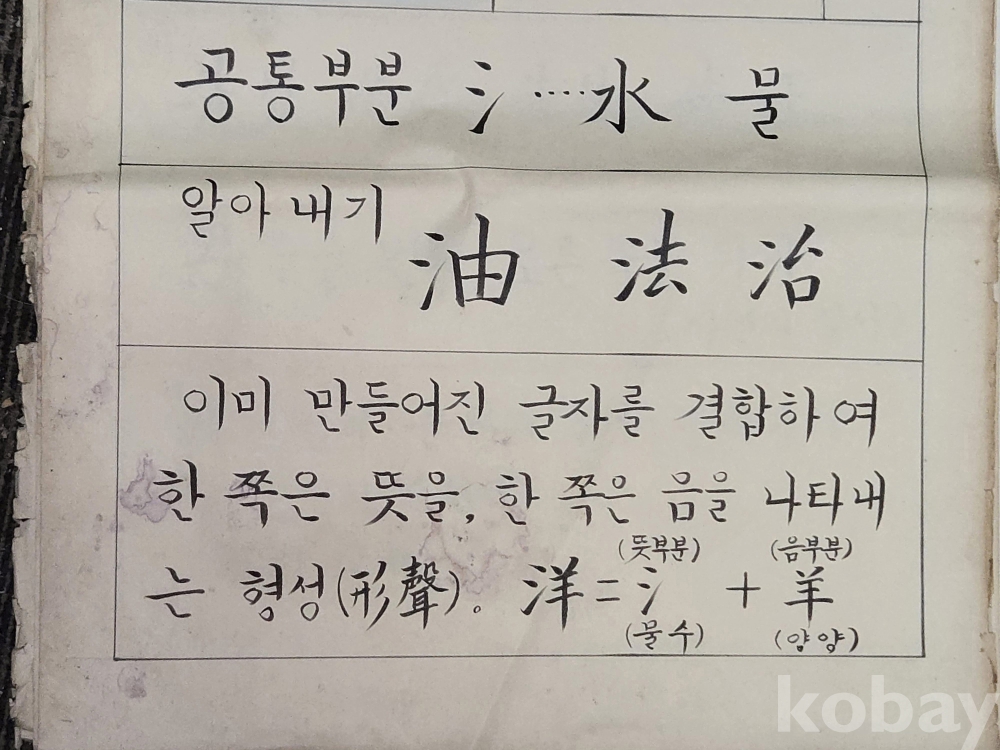 공통부분 氵····水 물
알아 내기
油 法 治
이미 만들어진 글자를 결합하여
한 쪽은 뜻을, 한 쪽은 음을 나타내
(뜻부분) (음부분)
는 형성(形聲)。 洋=氵 + 羊
(물 수) (양양)
kobay